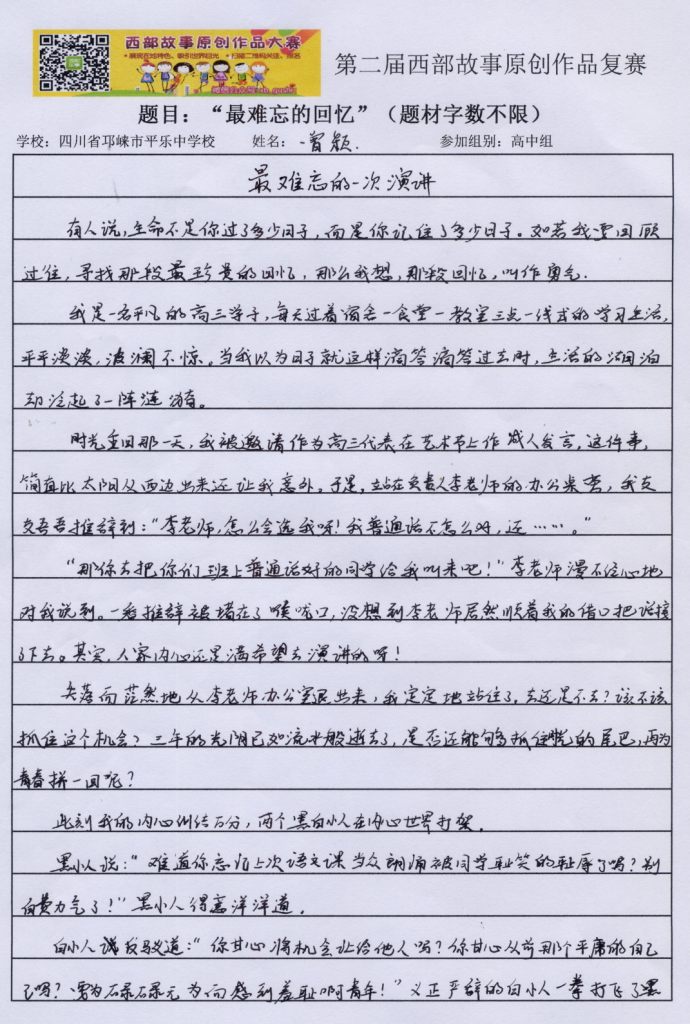 西部故事原创作品大赛
第二届西部故事原创作品复赛
题目：“最难忘的回忆”（题材字数不限）
学校：四川省邛崃市平乐中学校 姓名：曾颖. 参加组别：高中组
最难忘的一次演讲
有人说，生命不是你过了多少日子，而是你记住了多少日子。如若我要回顾
过往，寻找那段最珍贵的回忆，那么我想，那段回忆，叫作勇气.
我是一名平凡的高三学子，每天过着宿舍一食堂一教室三点一线式的学习生活，
平平淡淡，波澜不惊。当我以为日子就这样滴答滴答过去时，生活的湖泊
却泛起了一阵涟漪。
时光重回那一天，我被邀请作为高三代表在艺术节上作成人发言。这件事，
简直比太阳从西边出来还让我意外。于是，站在负责人李老师的办公桌旁，我支
支吾吾推辞到：“李老师，怎么会选我呀！我普通话不怎么好，还……。”
“那你去把你们班上普通话好的同学给我叫来吧！”李老师漫不经心地
对我说到。一番推辞被堵在了喉咙口，没想到李老师居然顺着我的借口把话接
了下去。其实，人家内心还是满希望去演讲的呀！
失落而茫然地从李老师办公室退出来，我定定地站住了。去还是不去？该不该
抓住这个机会？三年的光阴已如流水般逝去了，是否还能够抓住它的尾巴，再为
青春拼一回呢？
此刻我的内心纠结万分，两个黑白小人在内心世界打架.
黑小人说：“难道你忘记上次语文课当众朗诵被同学耻笑的耻辱了吗？别
白费力气了！”黑小人得意洋洋道.
白小人反驳道：“你甘心将机会让给他人吗？你甘心从前那个平庸的自己
了吗？要为碌碌无为而感到羞耻啊青年！”义正严辞的白小人一拳打飞了黑